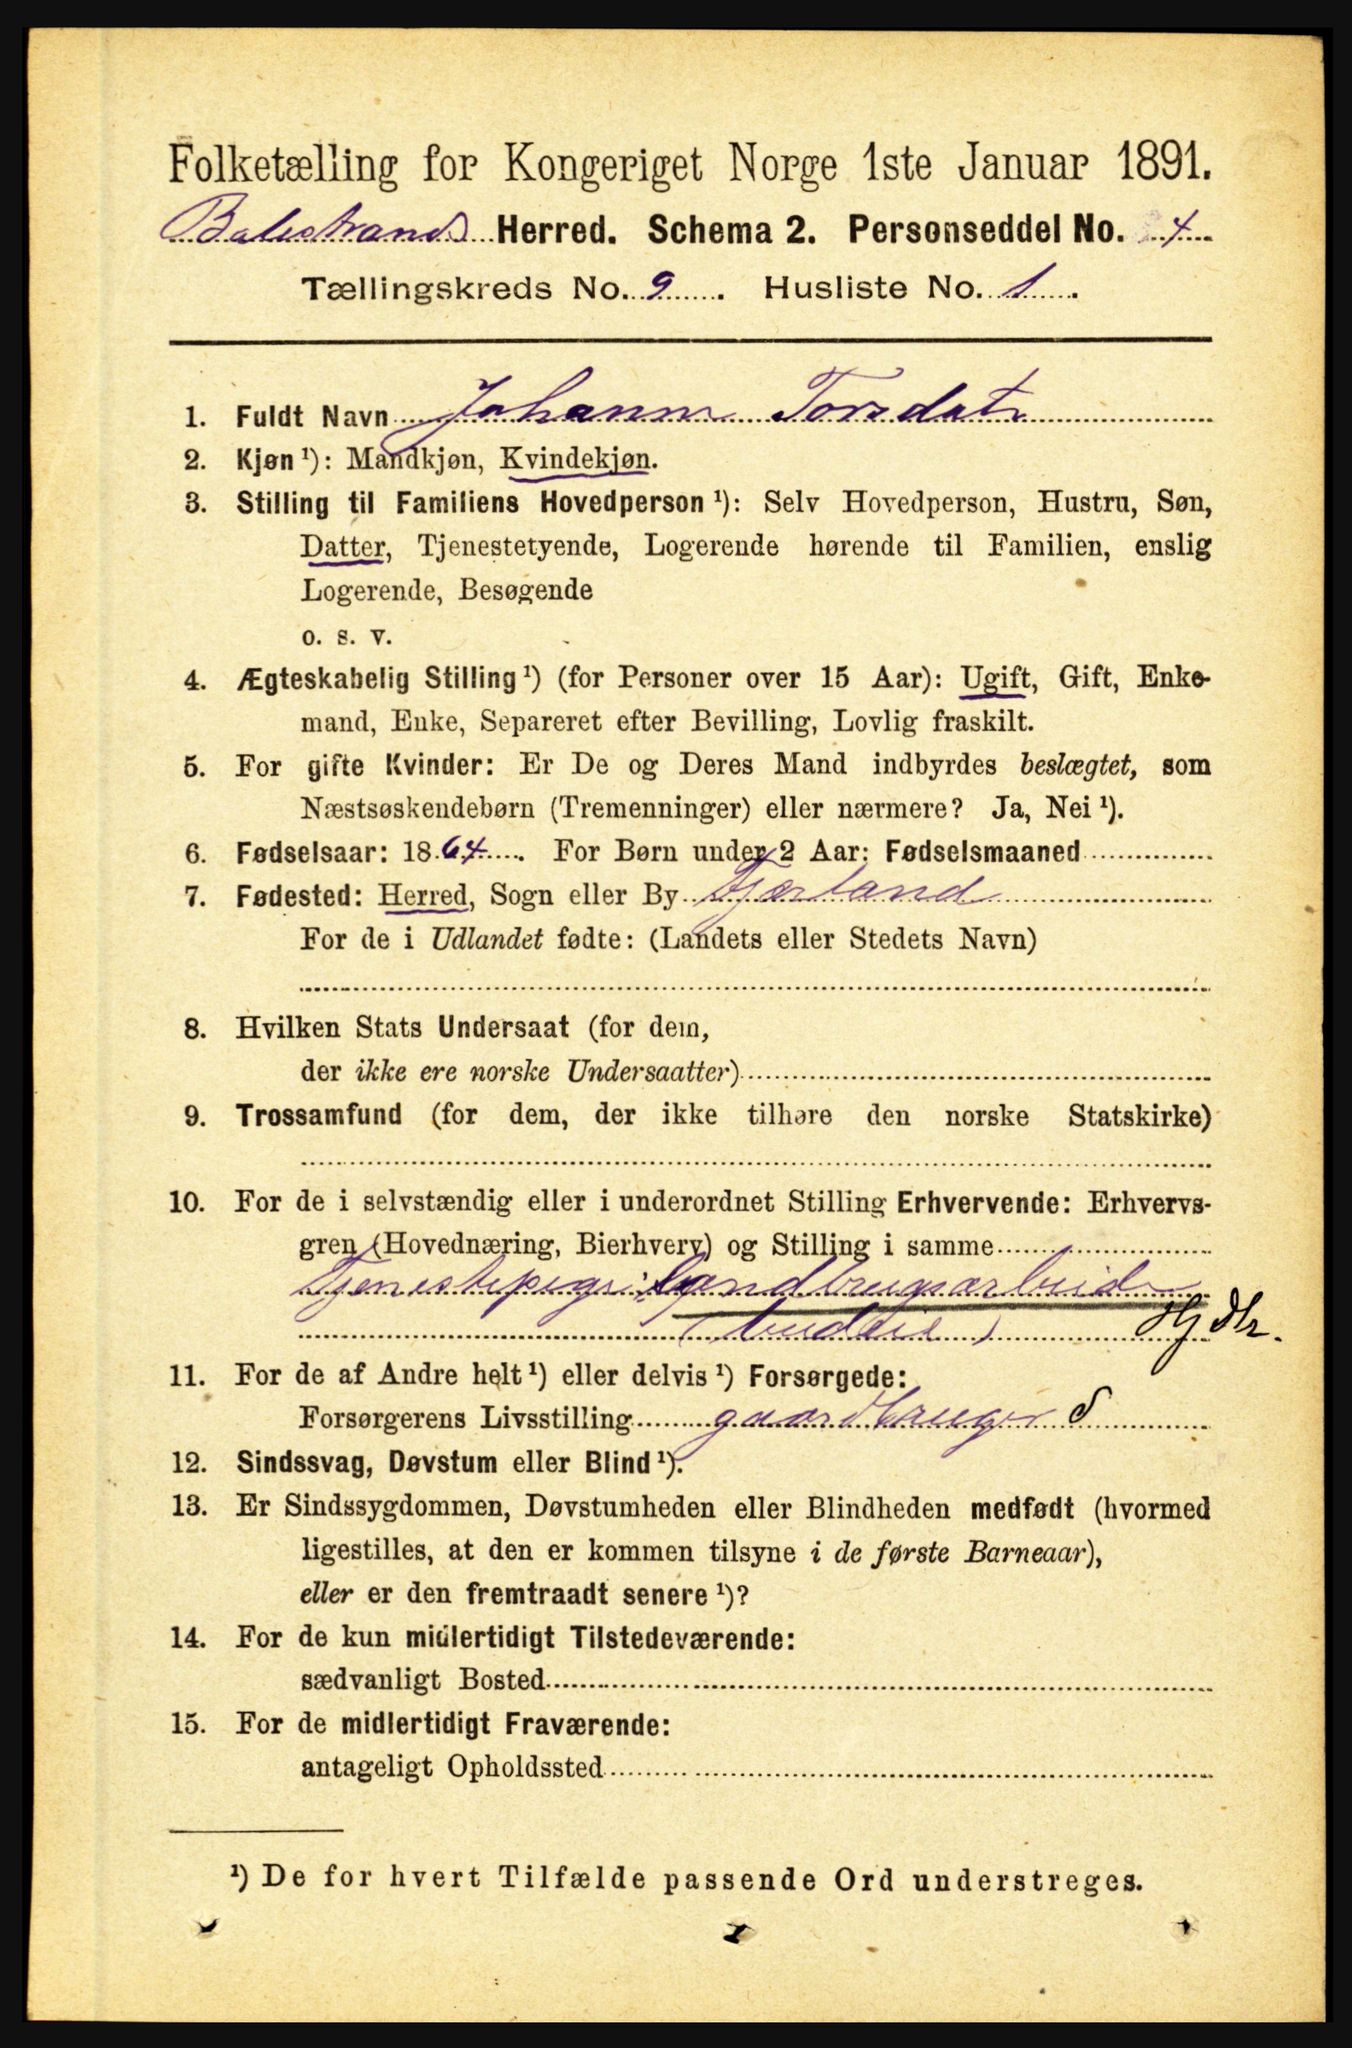 Folketælling for Kongeriget Norge 1ste Januar 1891.
Balestrands Herred. Schema 2. Personseddel No. 4
Tællingskreds No. 9. Husliste No. 1.
1. Fuldt Navn Johanne Torsdatr
2. Kjøn ¹): Mandkjøn, Kvindekjøn.
3. Stilling til Familiens Hovedperson ¹): Selv Hovedperson, Hustru, Søn,
Datter, Tjenestetyende, Logerende hørende til Familien, enslig
Logerende, Besøgende
o. s. v.
4. Ægteskabelig Stilling ¹) (for Personer over 15 Aar): Ugift, Gift, Enke-
mand, Enke, Separeret efter Bevilling, Lovlig fraskilt.
5. For gifte Kvinder: Er De og Deres Mand indbyrdes beslægtet, som
Næstsøskendebørn (Tremenninger) eller nærmere? Ja, Nei ¹).
6. Fødselsaar: 1864. For Børn under 2 Aar: Fødselsmaaned
7. Fødested: Herred, Sogn eller By Fjærland
For de i Udlandet fødte: (Landets eller Stedets Navn)
8. Hvilken Stats Undersaat (for dem,
der ikke ere norske Undersaatter)
9. Trossamfund (for dem, der ikke tilhøre den norske Statskirke)
10. For de i selvstændig eller i underordnet Stilling Erhvervende: Erhvervs-
gren (Hovednæring, Bierhverv) og Stilling i samme
Tjenestepige: Landbrugsarbeide
(budeie)
11. For de af Andre helt ¹) eller delvis ¹) Forsørgede:
Forsørgerens Livsstilling gaardbruger S
12. Sindssvag, Døvstum eller Blind ¹).
13. Er Sindssygdommen, Døvstumheden eller Blindheden medfødt (hvormed
ligestilles, at den er kommen tilsyne i de første Barneaar),
eller er den fremtraadt senere ¹)?
14. For de kun midlertidigt Tilstedeværende:
sædvanligt Bosted
15. For de midlertidigt Fraværende:
antageligt Opholdssted
¹) De for hvert Tilfælde passende Ord understreges.